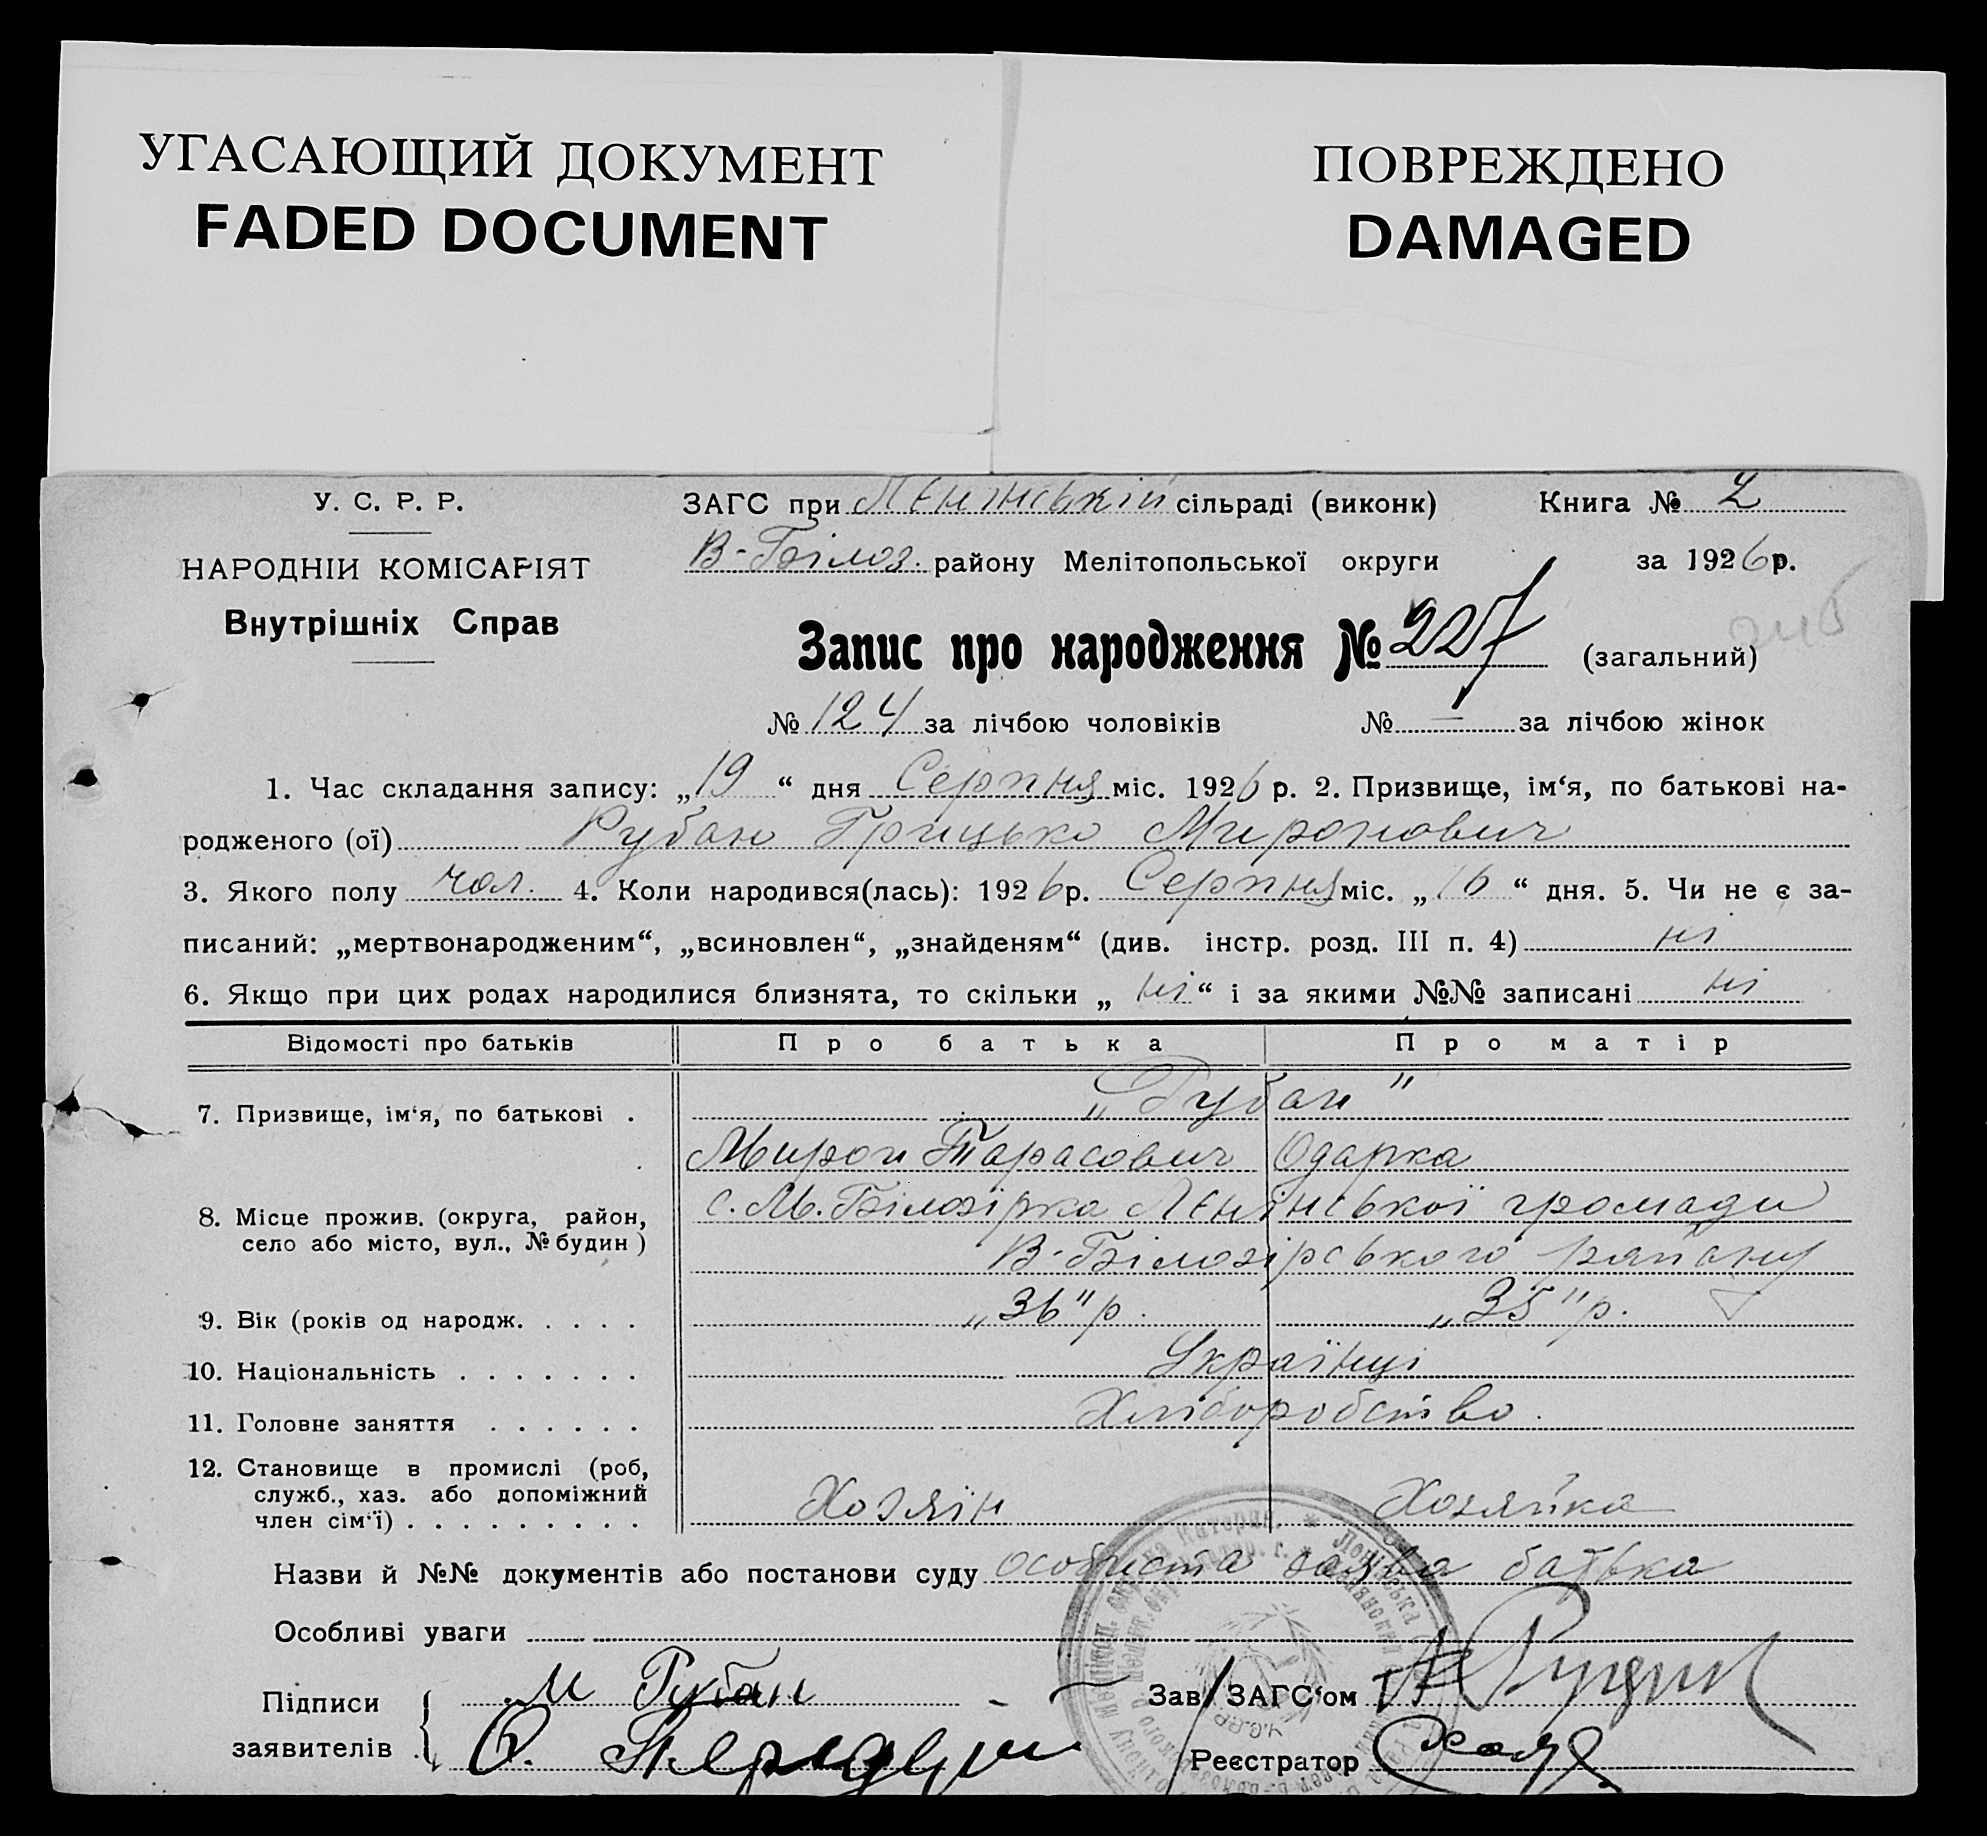 УГАСАЮЩИЙ ДОКУМЕНТ
FADED DOCUMENT
ПОВРЕЖДЕНО
DAMAGED
У. С. Р. Р.
НАРОДНІИ КОМІСАРІЯТ
Внутрішніх Справ
ЗАГС при Лєнінській сільраді (виконк) Книга № 2
В-Білоз. району Мелітопольської округи за 1926 р.
Запис про народження № 227 (загальний)
№ 124 за лічбою чоловіків № — за лічбою жінок
1. Час складання запису: „19“ дня Серпня міс. 1926 р. 2. Призвище, ім‘я, по батькові на-
родженого (ої) Рубан Грицько Миронович
3. Якого полу чол. 4. Коли народився(лась): 1926 р. Серпня міс. „16“ дня. 5. Чи не є за-
писаний: „мертвонародженим“, „всиновлен“, „знайденям“ (див. інстр. розд. III п. 4) ні
6. Якщо при цих родах народилися близнята, то скільки „ні“ і за якими №№ записані ні
Відомості про батьків Про батька Про матір
7. Призвище, ім‘я, по батькові . „Рубан"
Мирон Тарасович Одарка
8. Місце прожив. (округа, район, с. М. Білозірка Лєнінської громади
село або місто, вул., № будин) В-Білозірського району
9. Вік (років од народж. . . . . „36" р. „35" р.
10. Національність . . . . . . . Українці
11. Головне заняття . . . . . . Хліборобство.
12. Становище в промислі (роб,
служб., хаз. або допоміжний Хозяїн Хозяйка
член сім‘ї) . . . . . . . . .
Назви й №№ документів або постанови суду особиста заява батька
Особливі уваги
Підписи М Рубан Зав/ ЗАГС‘ом
заявителів О. Реєстратор